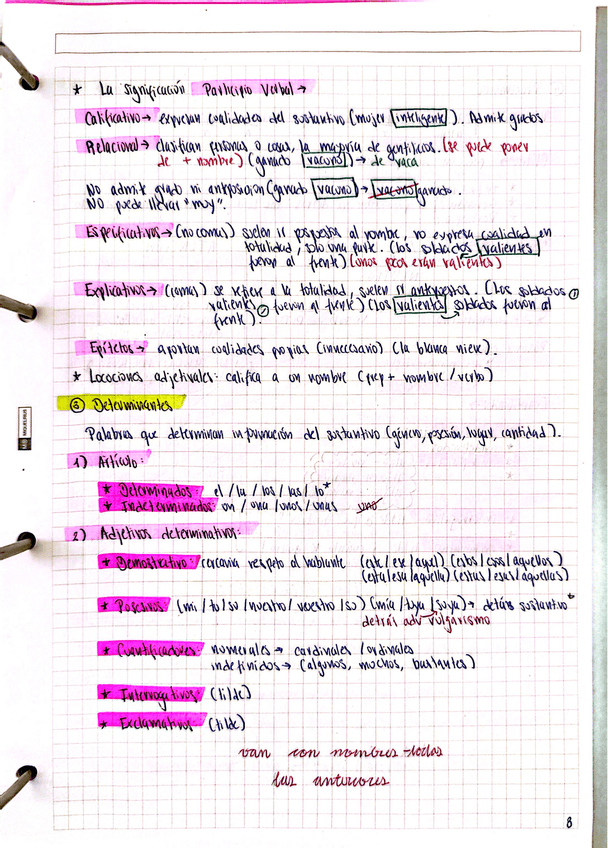 * La significación Participio Verbal →
Calificativo → expresan cualidades del sustantivo (mujer inteligente). Admite grados
Relacional → clasifican personas o cosas, la mayoría de gentilicos. (se puede poner
de + nombre) (ganado vacuno) → de vaca
No admite grado ni anteposición (ganado vacuno) → vacuno ganado.
NO puede llevar "muy".
Especificativos → (no comas) suelen ir pospuestos al nombre, no expresa cualidad en
totalidad, solo una parte. (los soldados valientes
fueron al frente) (unos pocos eran valientes)
Explicativos → (comas) se refiere a la totalidad, suelen ir antepuestos. (Los soldados ,
valientes , fueron al frente) (Los valientes soldados fueron al
frente).
Epítetos → aportan cualidades propias (innecesario) (la blanca nieve).
* Locuciones adjetivales: califica a un nombre (prep + nombre / verbo)
③ Determinantes
Palabras que determinan información del sustantivo (género, posesión, lugar, cantidad).
1) Artículo:
* Determinados: el / la / los / las / lo*
* Indeterminados: un / una / unos / unas uno
2) Adjetivos determinativos:
* Demostrativo: cercanía respeto al hablante (este / ese / aquel) (estos / esos / aquellos)
(esta / esa / aquella) (estas / esas / aquellas)
* Posesivos (mi / tu / su / nuestro / vuestro / su) (mía / tuya / suya) → detrás sustantivo
detrás adv vulgarismo
* Cuantificadores: numerales → cardinales / ordinales
indefinidos → (algunos, muchos, bastantes)
* Interrogativos: (tilde)
* Exclamativos: (tilde)
van con nombres todas
las anteriores
MIQUELRIUS
8